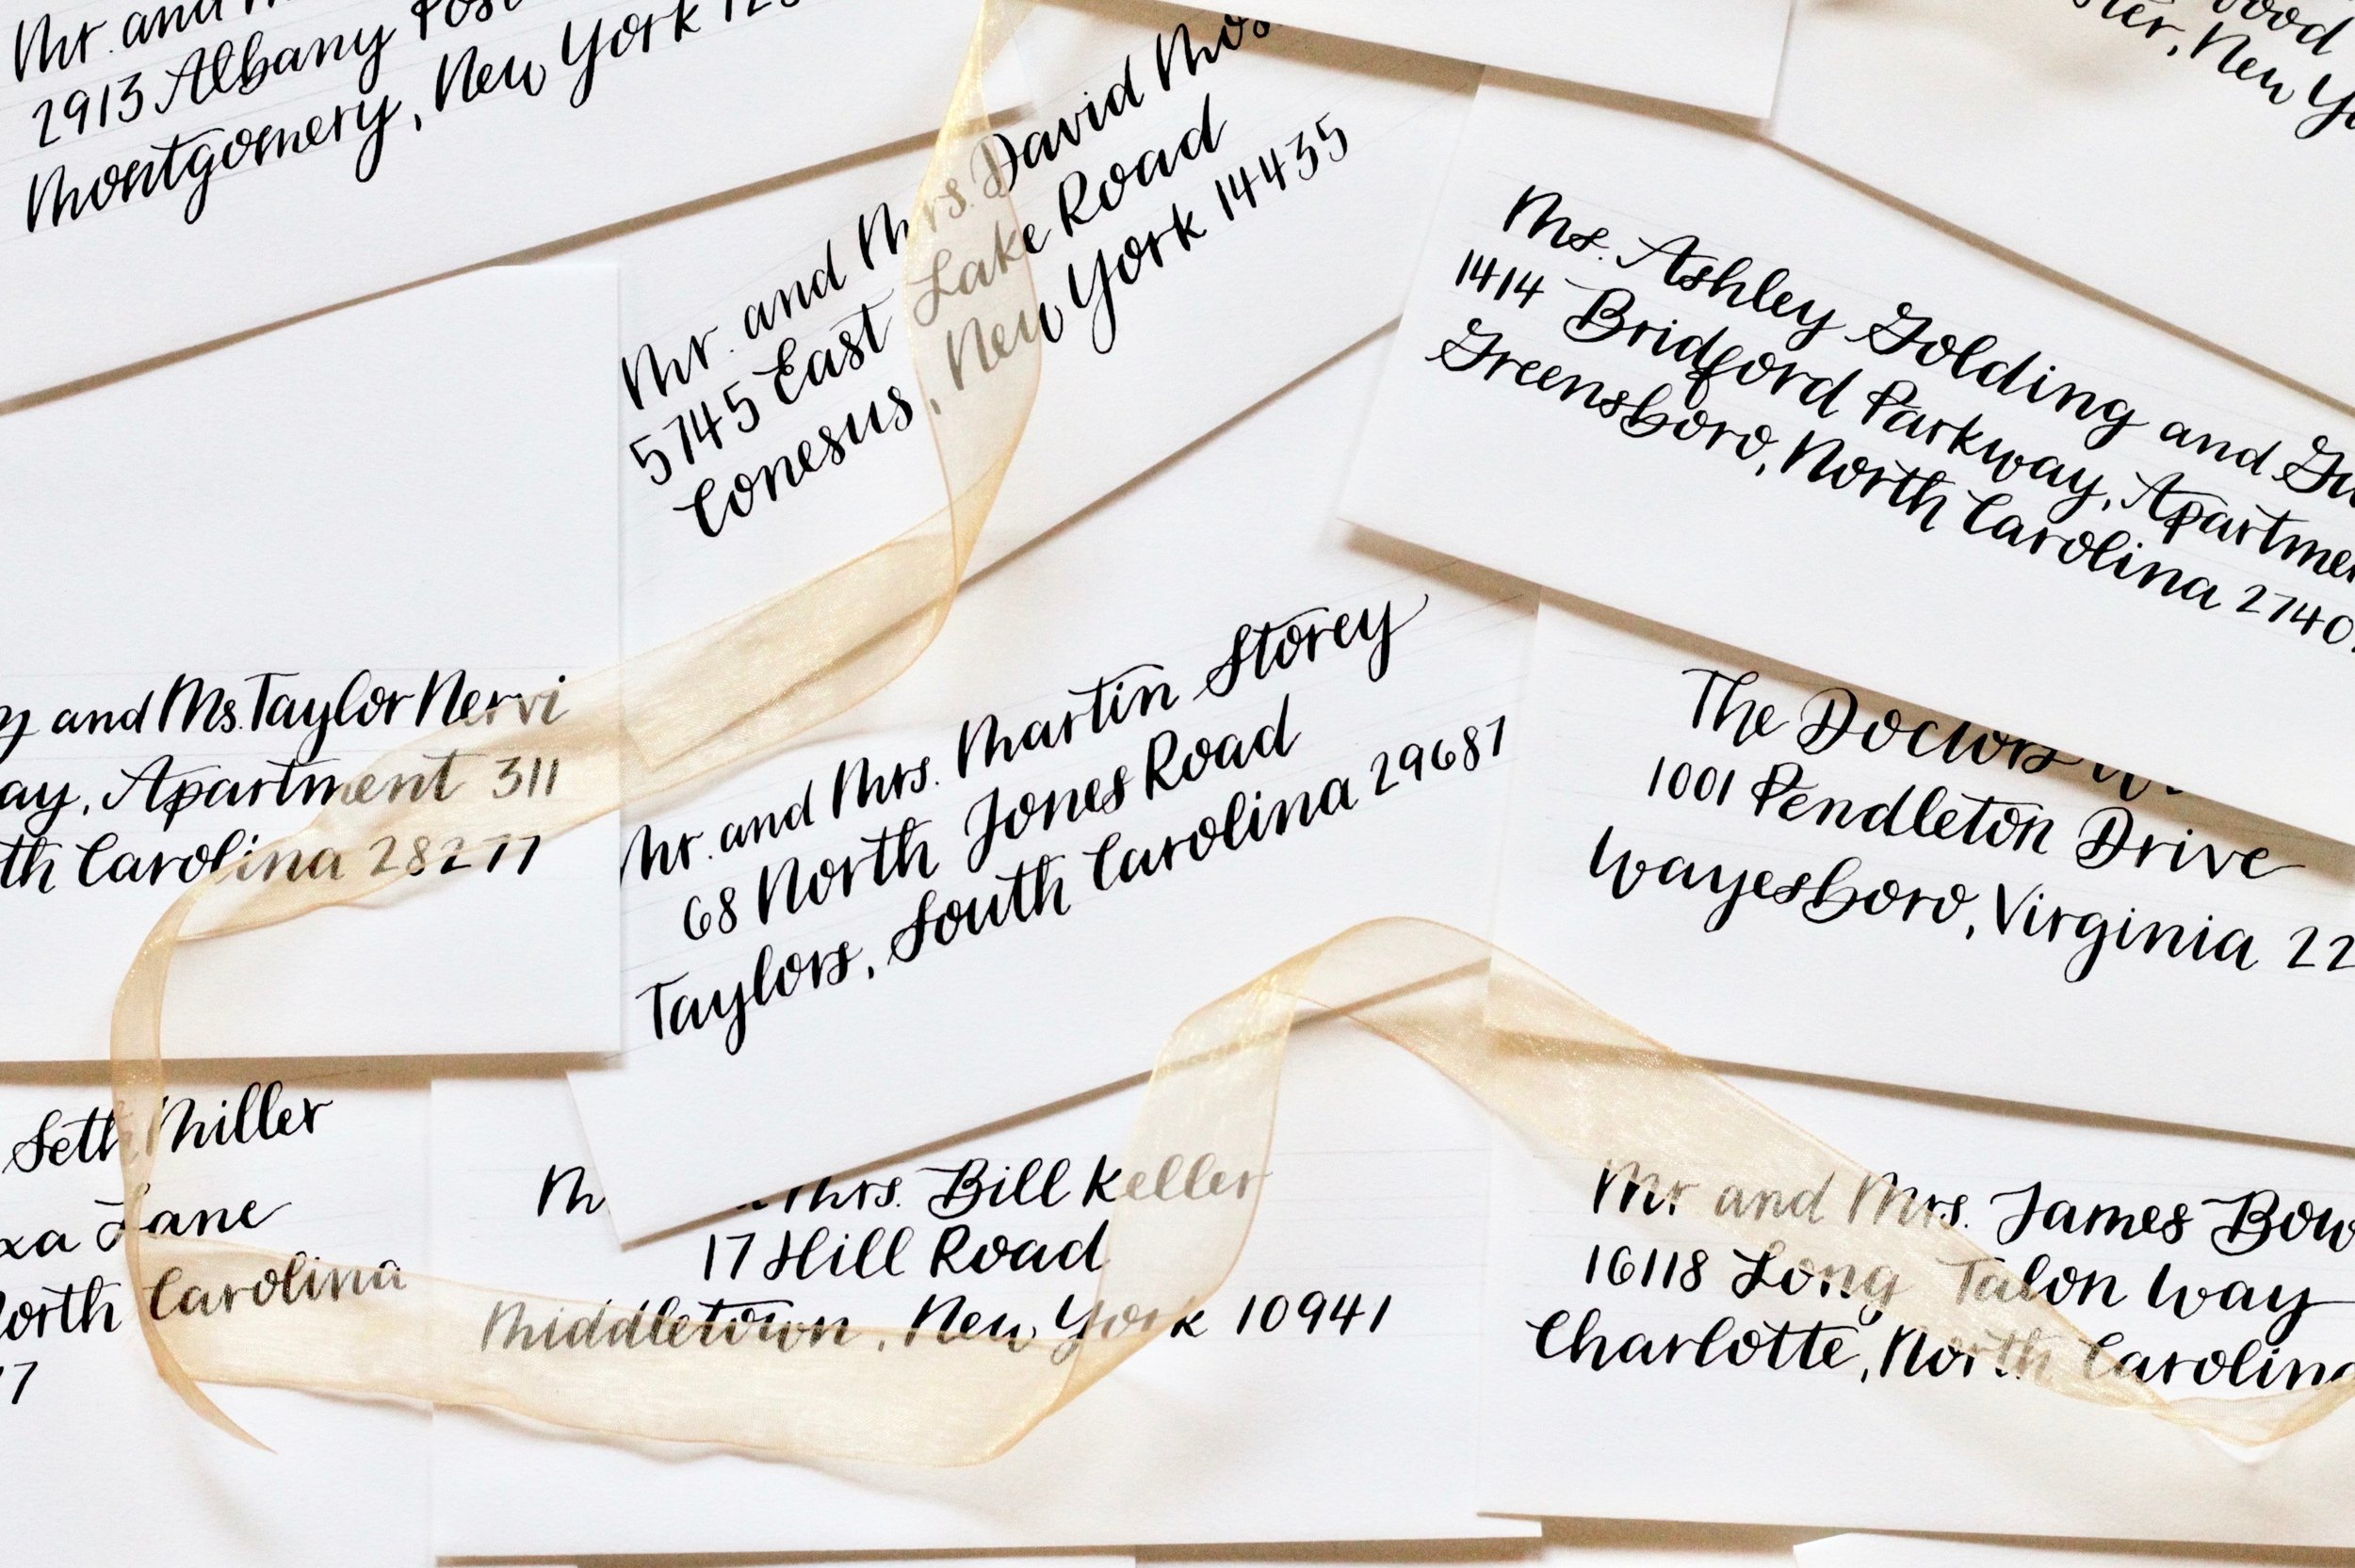 Mr. and
2913 Albany Post
Montgomery, New York
Mr. and Mrs. David
5745 East Lake Road
Conesus, New York 14435
New
Ms. Ashley Golding and
1414 Bridford Parkway, Apartment
Greensboro, North Carolina 2740
and Ms. Taylor Nervi
Apartment 311
Carolina 28277
Mr. and Mrs. Martin Storey
68 North Jones Road
Taylors, South Carolina 29687
The Doctors
1001 Pendleton Drive
Wayesboro, Virginia 22
Seth Miller
Lane
North Carolina
Mrs. Bill Keller
17 Hill Road
Middletown, New York 10941
Mr. and Mrs. James
16118 Long Talon Way
Charlotte, North Carolina